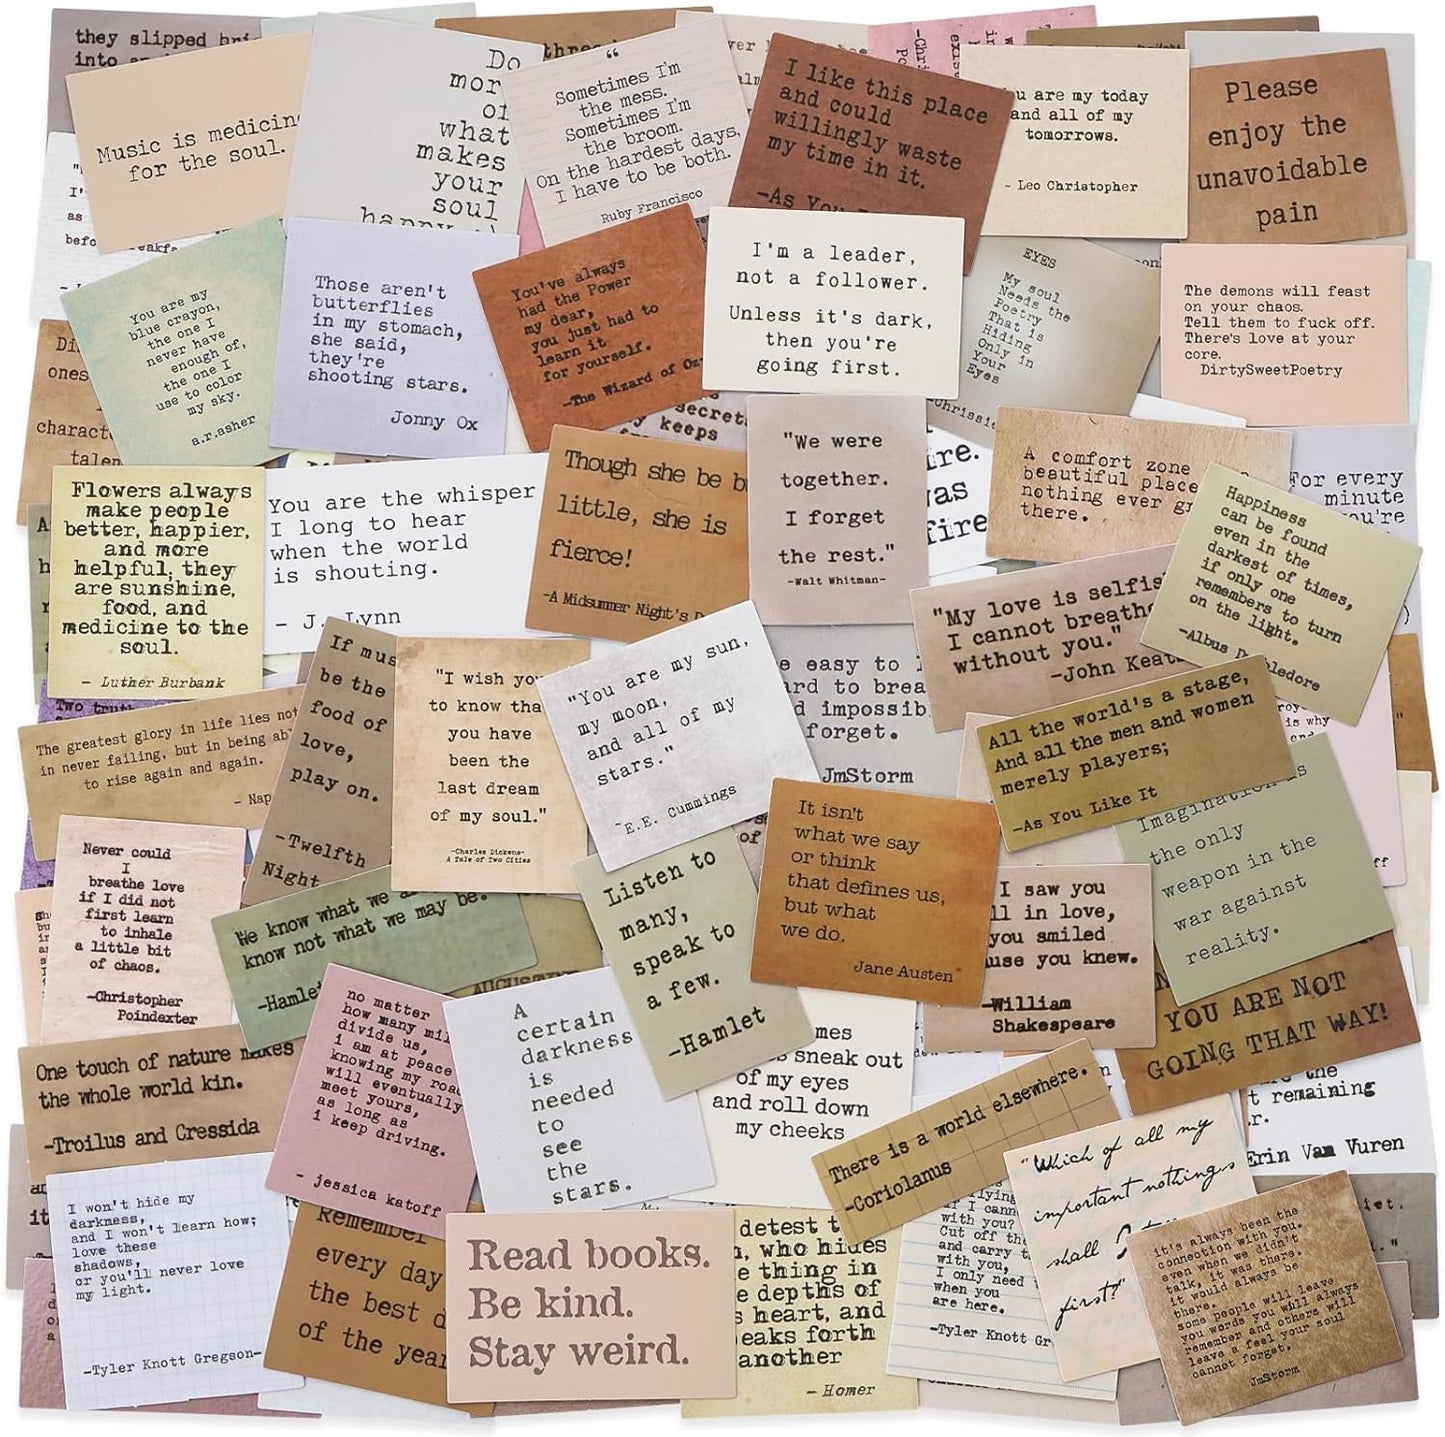 they slipped
into
Music is medicine
for the soul.
Do
more
of
what
makes
your
soul
happy
Sometimes I'm
the mess.
Sometimes I'm
the broom.
On the hardest days,
I have to be both.
Ruby Francisco
I like this place
and could
willingly waste
my time in it.
-As You
are my today
and all of my
tomorrows.
~ Leo Christopher
Please
enjoy the
unavoidable
pain
You are my
blue crayon,
the one I
never have
enough of,
the one I
use to color
my sky.
a.r.asher
Those aren't
butterflies
in my stomach,
she said,
they're
shooting stars.
Jonny Ox
You've always
had the Power
my dear,
you just had to
learn it
for yourself.
-The Wizard of Oz
I'm a leader,
not a follower.
Unless it's dark,
then you're
going first.
EYES
My soul
Needs the
Poetry
That is
Hiding
Only in
Your
Eyes
The demons will feast
on your chaos.
Tell them to fuck off.
There's love at your
core.
DirtySweetPoetry
secret
keeps
Flowers always
make people
better, happier,
and more
helpful; they
are sunshine,
food, and
medicine to the
soul.
- Luther Burbank
You are the whisper
I long to hear
when the world
is shouting.
- J. Lynn
Though she be b
little, she is
fierce!
-A Midsummer Night's D
"We were
together.
I forget
the rest."
-Walt Whitman-
ire.
was
fire
A comfort zone
beautiful place
nothing ever gr
there.
For every
minute
you're
Happiness
can be found
even in the
darkest of times,
if only one
remembers to turn
on the light.
-Albus Dumbledore
"My love is selfis
I cannot breathe
without you."
-John Keat
If mus
be the
food of
love,
play on.
-Twelfth
Night
"I wish you
to know tha
you have
been the
last dream
of my soul."
-Charles Dickens-
A Tale of Two Cities
"You are my sun,
my moon,
and all of my
stars."
~E.E. Cummings
e easy to
ard to brea
d impossib
forget.
JmStorm
All the world's a stage,
And all the men and women
merely players;
-As You Like It
Two truth
The greatest glory in life lies not
in never failing, but in being abl
to rise again and again.
- Nap
Never could
I
breathe love
if I did not
first learn
to inhale
a little bit
of chaos.
-Christopher
Poindexter
We know what we a
know not what we may be.
-Hamlet
Listen to
many,
speak to
a few.
-Hamlet
It isn't
what we say
or think
that defines us,
but what
we do.
Jane Austen
I saw you
ll in love,
you smiled
use you knew.
-William
Shakespeare
Imagination is
the only
weapon in the
war against
reality.
YOU ARE NOT
GOING THAT WAY!
One touch of nature makes
the whole world kin.
-Troilus and Cressida
no matter
how many mil
divide us,
i am at peace
knowing my roa
will eventually
meet yours,
as long as
i keep driving.
- jessica katoff
A
certain
darkness
is
needed
to
see
the
stars.
mes
sneak out
of my eyes
and roll down
my cheeks
There is a world elsewhere.
-Coriolanus
the
t remaining
r.
Erin Van Vuren
I won't hide my
darkness,
and I won't learn how;
love these
shadows,
or you'll never love
my light.
-Tyler Knott Gregson-
Remember
every day
the best d
of the year
Read books.
Be kind.
Stay weird.
detest t
, who hides
e thing in
e depths of
s heart, and
eaks forth
another
- Homer
flying
if I cann
with you?
Cut off the
and carry t
with you,
I only need
when you
are here.
-Tyler Knott Gr
"Which of all my
important nothings
shall
first?"
it's always been the
connection with you.
even when we didn't
talk, it was there.
it would always be
there.
some people will leave
you words you will always
remember and others will
leave a feel your soul
cannot forget.
JmStorm